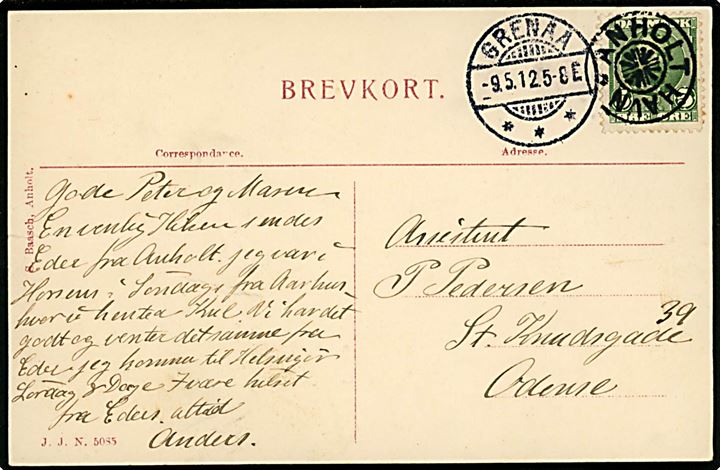 GRENAA
-9.5.12.5-8E.
ANHOLT HAVN
DANMARK
BREVKORT.
Correspondance.
Adresse.
S. Baasch, Anholt.
Gode Peter og Maren
En venlig Hilsen sendes
Eder fra Anholt. jeg var i
Horsens i Søndags fra Aarhus
hvor vi hentea Kul Vi har det
godt og venter det samme fra
Eder jeg kommer til Helsingør
Lørdag 8 Dage Være hilset
fra Eders altid
Anders.
J. J. N. 5085
Assistent
P Pedersen
St. Knudsgade 39
Odense